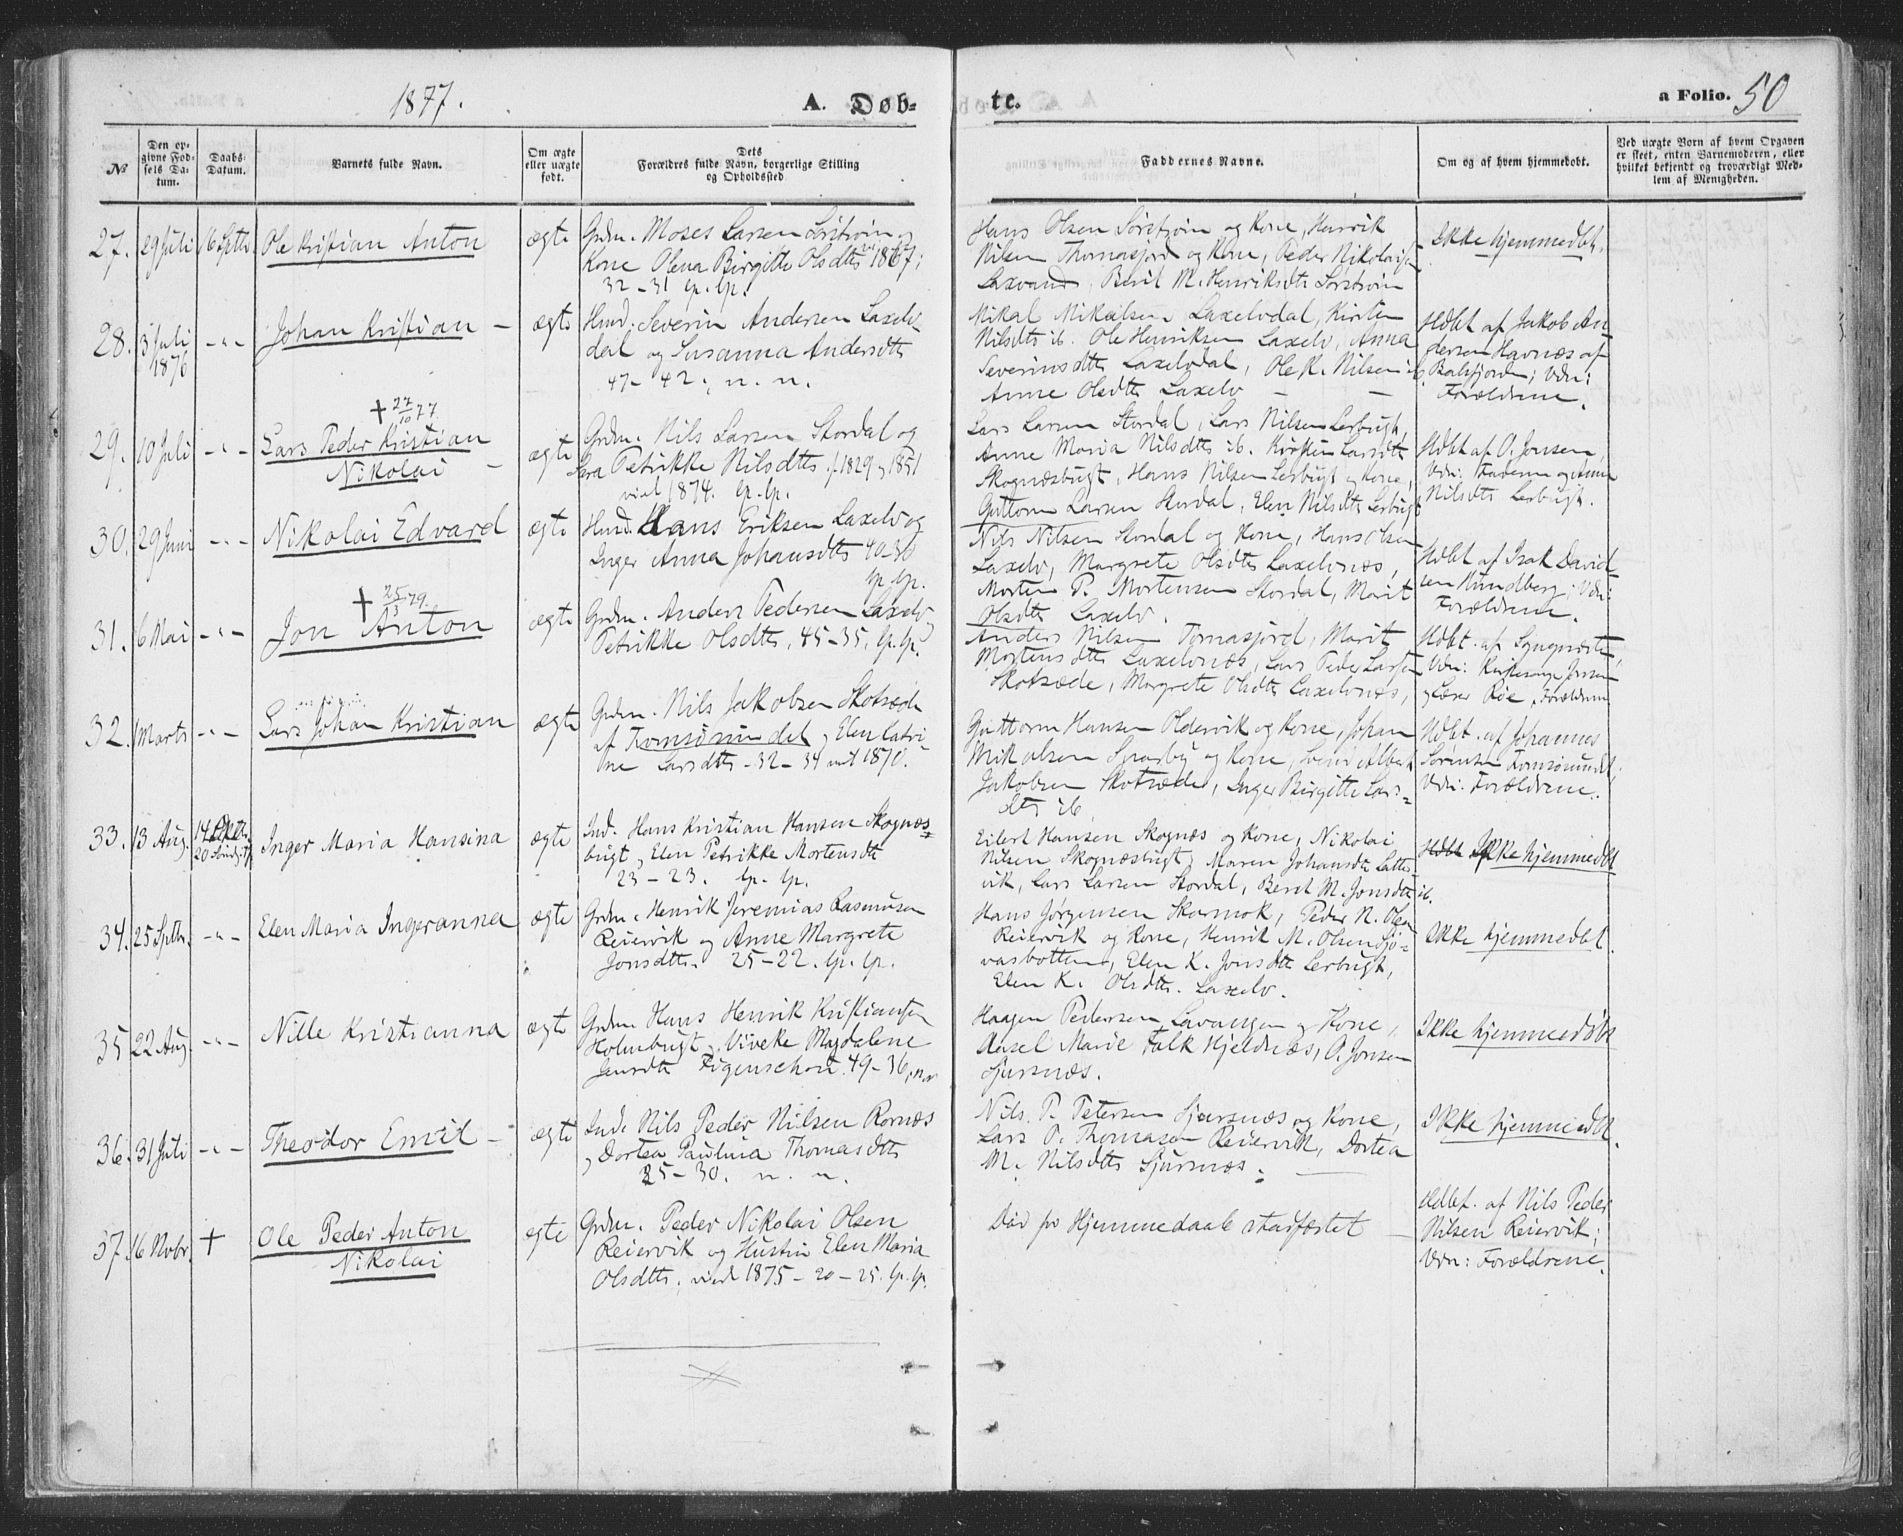 1877.
A. Døb-
te.
a Folio. 50
№
Den op-
givne Fød-
sels Da-
tum.
Daabs-
Datum.
Barnets fulde Navn.
Om ægte
eller uægte
født.
Dets
Forældres fulde Navn, borgerlige Stilling
og Opholdssted
Faddernes Navne.
Om og af hvem hjemmedøbt.
Ved uægte Børn af hvem Opgaven
er skeet, enten Barnemoderen, eller
hvilket bekjendt og troværdigt Med-
lem af Menigheden.
27. 29 Juli 16 Septbr. Ole Kristian Anton ægte
Grdm. Moses Larsen Sørstrøm og
Kone Olena Birgitte Olsdtr 1867;
32-31 lp. lp.
Hans Olsen Sørstrøm og Kone, Henrik
Nilsen Thomasjord og Kone, Peder Nikolaisen
Laxvand, Berit M. Henriksdtr Sørstrøm
Ikke hjemmedbt.
28. 3 Juli 1876 -"- Johan Kristian - ægte
Husd. Severin Andersen Laxelv-
dal og Susanna Andersdtr
47-42. n. n.
Mikal Mikalsen Laxelvdal, Kirsten
Nilsdtr ib. Ole Henriksen Laxelv, Anna
Severinsdtr Laxelvdal, Ole K. Nilsen ib.
Anne Olsdtr Laxelv - -
Hdbt af Jakob An-
dersen Havnæs af
Balsfjorden; Vdn:
Forældrene.
† 27/10 77.
29. 10 Juli -"- Lars Peder Kristian
Nikolai - ægte
Grdm. Nils Larsen Stordal og
Petrikke Nilsdtr f. 1829 og 1851
viet 1874. lp. lp.
Lars Larsen Stordal, Lars Nilsen Lerbugt,
Anne Maria Nilsdtr ib. Kirsten Larsdtr
Skognæsbugt, Hans Nilsen Lerbugt og Kone,
Guttorm Larsen Stordal, Elen Nilsdtr Lerbugt
Hdbt af O. Jensen,
Vdn: Faderen og Anne
Nilsdtr Lerbugt.
30. 29 Juni -"- Nikolai Edvard ægte
Husd. Hans Eriksen Laxelv og
Inger Anna Johansdtr 40-36
lp. lp.
Nils Nilsen Stordal og Kone, Hans Olsen
Laxelv, Margrete Olsdtr Laxelvnæs,
Morten P. Mortensen Stordal, Marit
Olsdtr Laxelv.
Hdbt af Isak David-
sen Mundberg; Vdn:
Forældrene.
† 25/3 79.
31. 6 Mai -"- Jon Anton ægte
Grdm. Anders Pedersen Laxelv
Petrikke Olsdtr, 45-35, lp. lp.
Anders Nilsen Tomasjord, Marit
Mortensdtr Laxelvnæs, Lars Peder Larsen
Skotsæde, Margrete Olsdtr Laxelvnæs,
Hdbt. af
Vdn: Kirkesanger Jensen
og Lærer Røe, Forældrene
32. 1 Marts -"- Lars Johan Kristian ægte
Grdm. Nils Jakobsen Skotsæde
af Tromsøsundet og Elen Katri-
ne Larsdtr - 32-34 viet 1870.
Guttorm Hansen Oldervik og Kone, Johan
Mikalsen Sparby og Kone, Albert
Jakobsen Skotsæde, Inger Birgitte Lars-
dtr ib
Hdbt. af Johannes
Sørensen Tromsøsundet,
Vdn: Forældrene.
33. 13 Aug. Inger Maria Hansina ægte
Ind. Hans Kristian Hansen Skognæs-
bugt, Elen Petrikke Mortensdtr
23-23. lp. lp.
Eilert Hansen Skognæs og Kone, Nikolai
Nilsen Skognæsbugt, Maren Johansdtr Latter-
vik, Lars Larsen Stordal, Berit M. Jonsdtr ib.
Ikke hjemmedbt
34. 25 Septbr. -"- Elen Maria Ingeranna ægte
Grdm. Henrik Jeremias Rasmusen
Reiervik og Anne Margrete
Jonsdtr. 25-22. lp. lp.
Hans Jørgensen Skarmok, Peder N. Olsen
Reiervik og Kone, Henrik M. Olsen Sjø-
vasbotten, Elen K. Jonsdtr Lerbugt,
Elen K. Olsdtr. Laxelv.
Ikke hjemmedbt.
35 22 Aug. -"- Nille Kristianna ægte
Grdm Hans Henrik Kristiansen
Holmbugt, Viveke Magdalene
Jensdtr Figenschou. 49-36, nor
Haagen Pedersen Lavangen og Kone,
Axsel Marie Falk Hjeldnæs, O. Jensen
Sjursnæs.
Ikke hjemmedøbt
36. 31 Juli -"- Theodor Emil - ægte
Ind. Nils Peder Nilsen Rornæs
og Dortea Paulina Thomasdtr
35-30. n. n.
Nils. P. Petersen Sjursnæs og Kone,
Lars O. Thomasen Reiervik, Dortea
M. Nilsdtr Sjursnæs.
Ikke hjemmedbt.
37. 16 Novbr. † Ole Peder Anton
Nikolai ægte
Grdm. Peder Nikolai Olsen
Reiervik og Hustru Elen Maria
Olsdtr. viet 1875 - 20-25. lp. lp.
Død før Hjemmedaab stadfæstet -
Hdbt. af Nils Peder
Nilsen Reiervik;
Vdn: Forældrene.